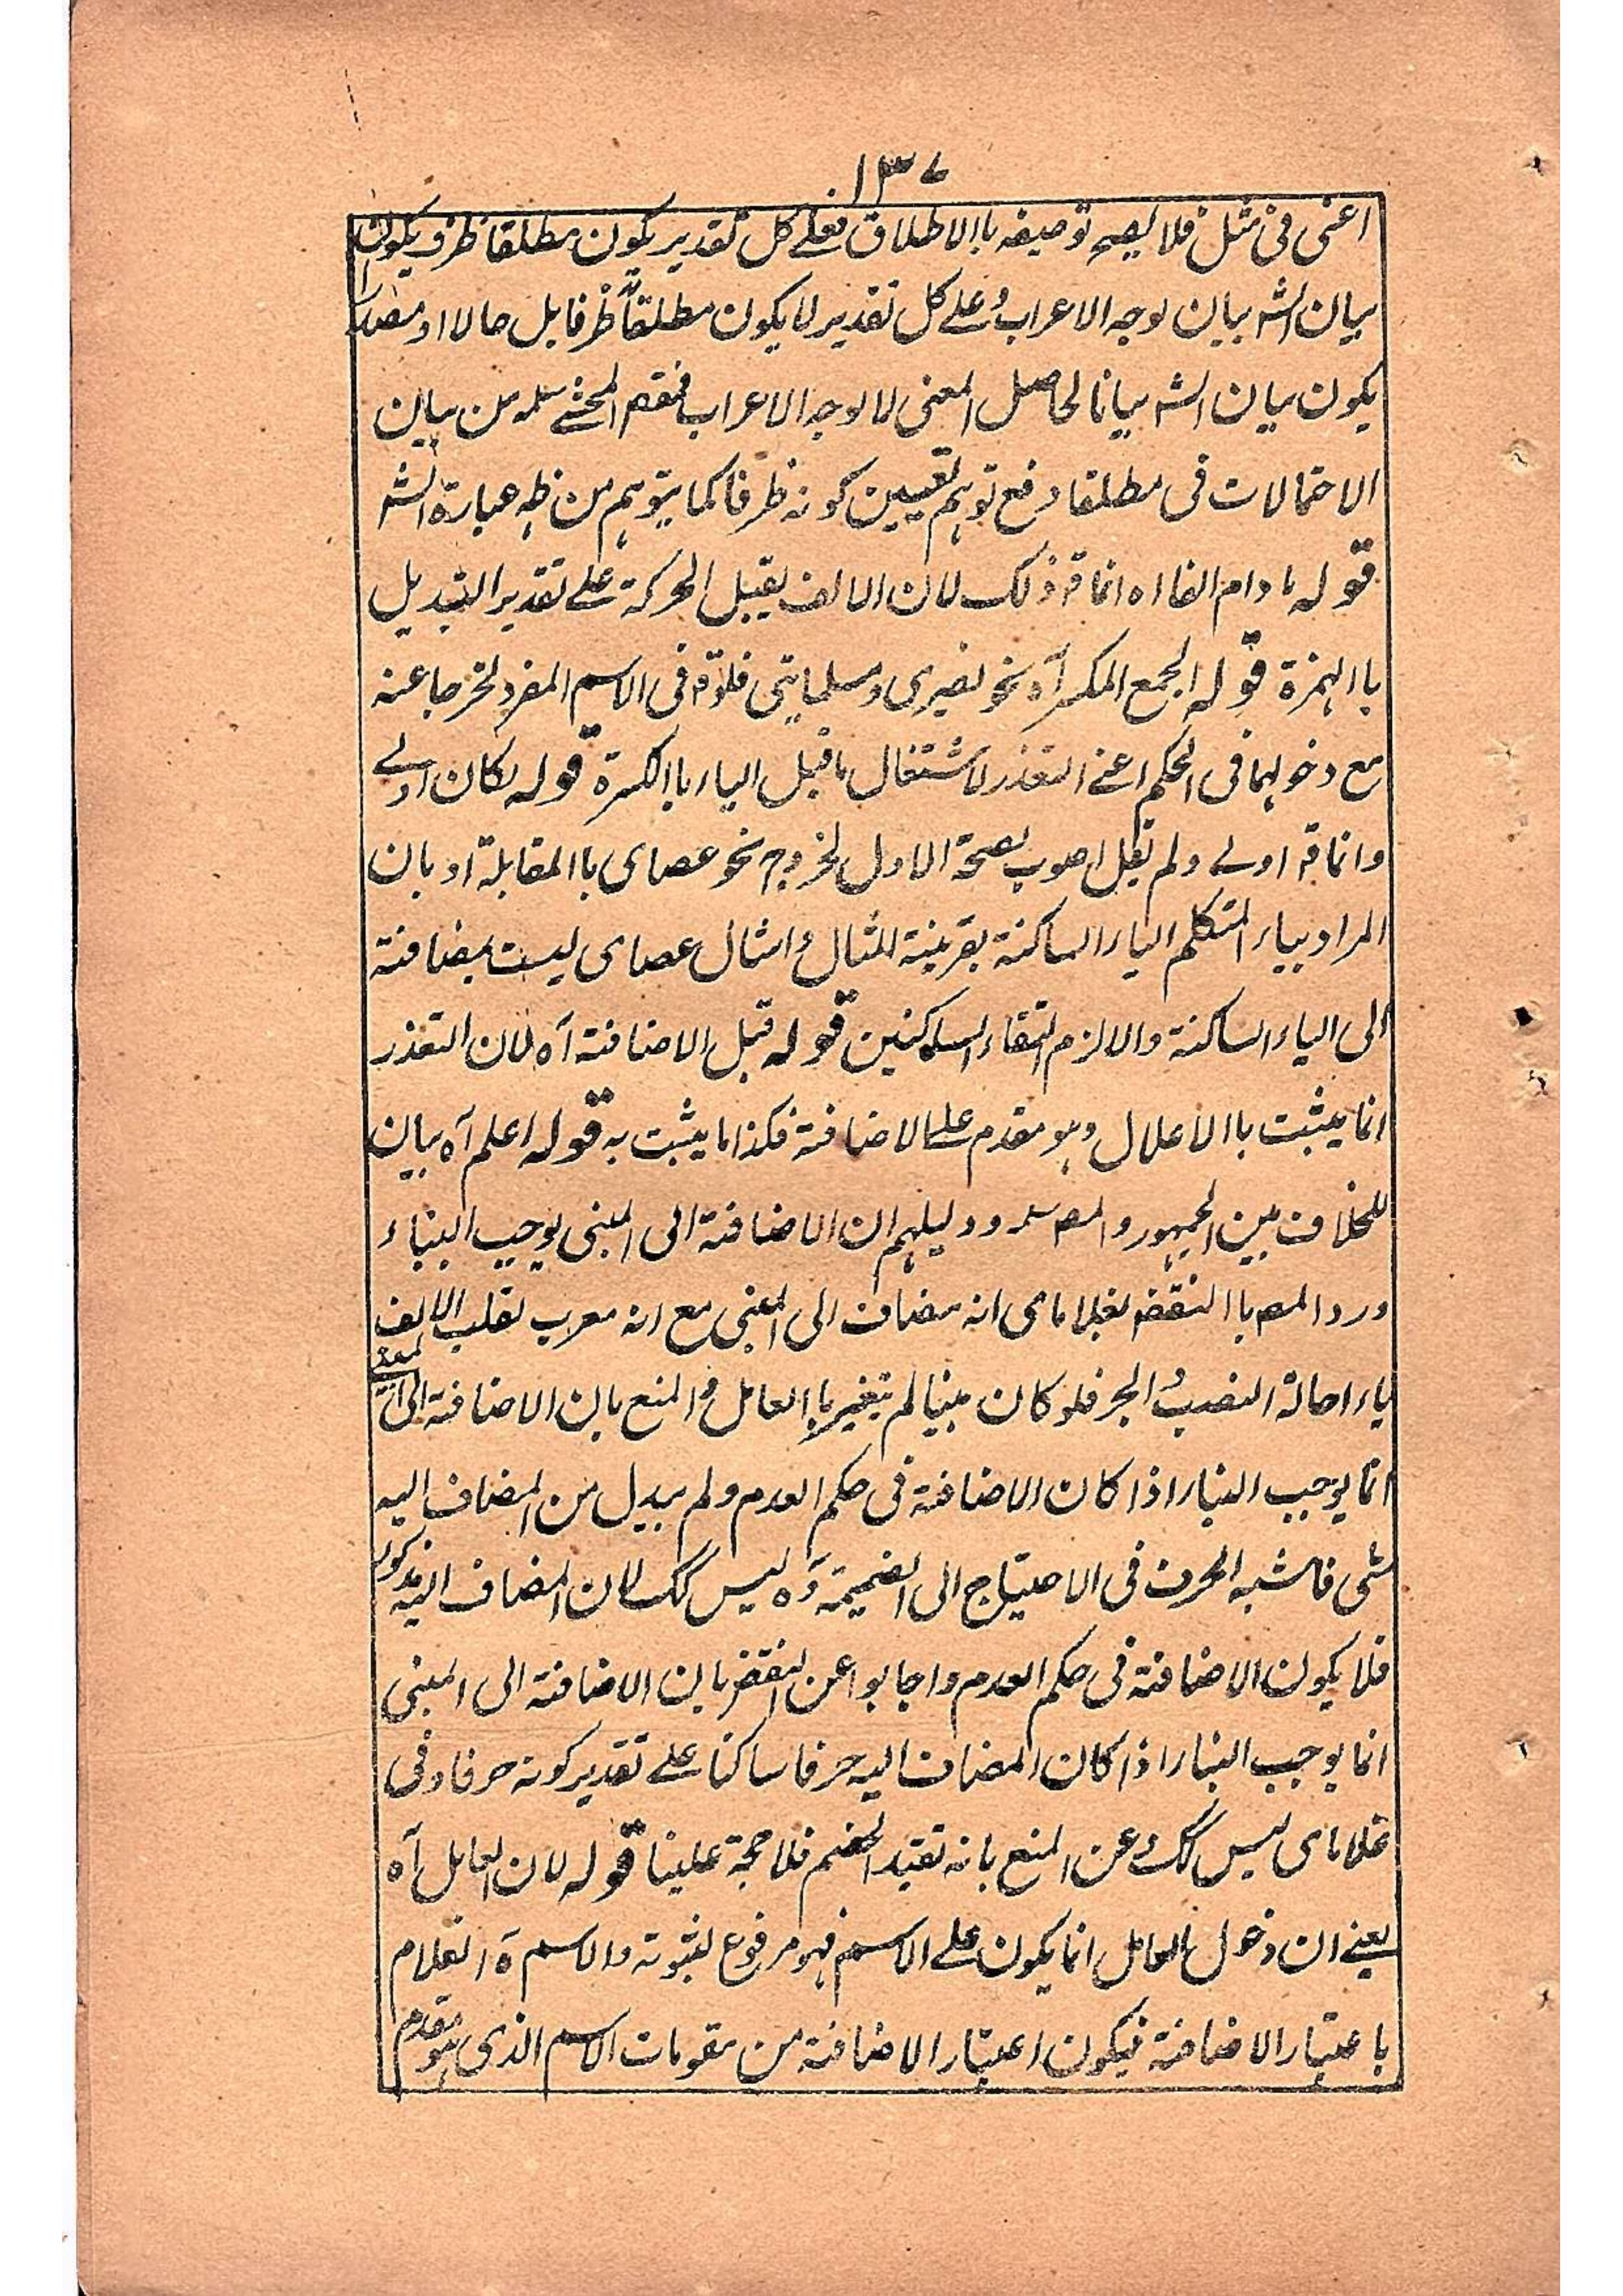 ١٣٧
اعنى فى مثل فلا يصح توصيفه باالاطلاق فعلے كل تقدير يكون مطلقا ظرف يكون
بيان الشہ بيان لوجه الاعراب وعلے كل تقدير لا يكون مطلقا ظرفا بل حالا او مصدرا
يكون بيان الشہ بيانا لحاصل المعنى لا لوجه الاعراب فمقصم المحشے سلمہ من بيان
الاحتمالات فى مطلقا دفع توهم تعيين كونه ظرفا كما يتوهم من ظہ عبارة الشہ
قوله ما دام الفا اه انما قہ ذلك لان الالف يقبل الحركة علے تقدير التبديل
باالهمزة قوله الجمع المكسر آه نحو نصيرى ومسلماتى فلو قہ فى الاسم المفرد لخرجا عنه
مع دخولهما فى الحكم اعنے التعذر لاشتغال ما قبل الياء باالكسرة قوله لكان اولے
وانما قہ اولے ولم نقل اصوب لصحة الاول لخروج نحو عصاى باالمقابلة او بان
المراد بياء المتكلم الياء الساكنة بقرينة المثال وامثال عصاى ليست بمضافة
الى الياء الساكنة والا لزم التقاء الساكنين قوله قبل الاضافة آه لان التعذر
انما يثبت باالاعلال وهو مقدم علے الاضافة فكذا ما يثبت به قوله اعلم آه بيان
للخلاف بين الجمهور والمصہ سلمہ ودليلهم ان الاضافة الى المبنى يوجب البناء
ورد المصہ باالنقض بغلاماى انه مضاف الى المبنى مع انه معرب لقلب الالف
ياء احالة النصب والجر فلو كان مبنيا لم يتغير باالعامل والمنع بان الاضافة الى
انما يوجب البناء اذا كان الاضافة فى حكم العدم ولم يبدل من المضاف اليه
شى فاشبه الحرف فى الاحتياج الى الضميمة وه ليس كك لان المضاف اليه مذكور
فلا يكون الاضافة فى حكم العدم واجابوا عن النقض بان الاضافة الى المبنى
انما يوجب البناء اذا كان المضاف اليه حرفا ساكنا علے تقدير كونه حرفا وفى
غلاماى ليس كك وعن المنع بانه تقييد الخصم فلا حجة علينا قوله لان العامل آه
يعنے ان دخول العامل انما يكون علے الاسم فهو مرفوع لثبوته والاسم ة الغلام
باعتبار الاضافة فيكون اعتبار الاضافة من مقومات الاسم الذى هو مقدم